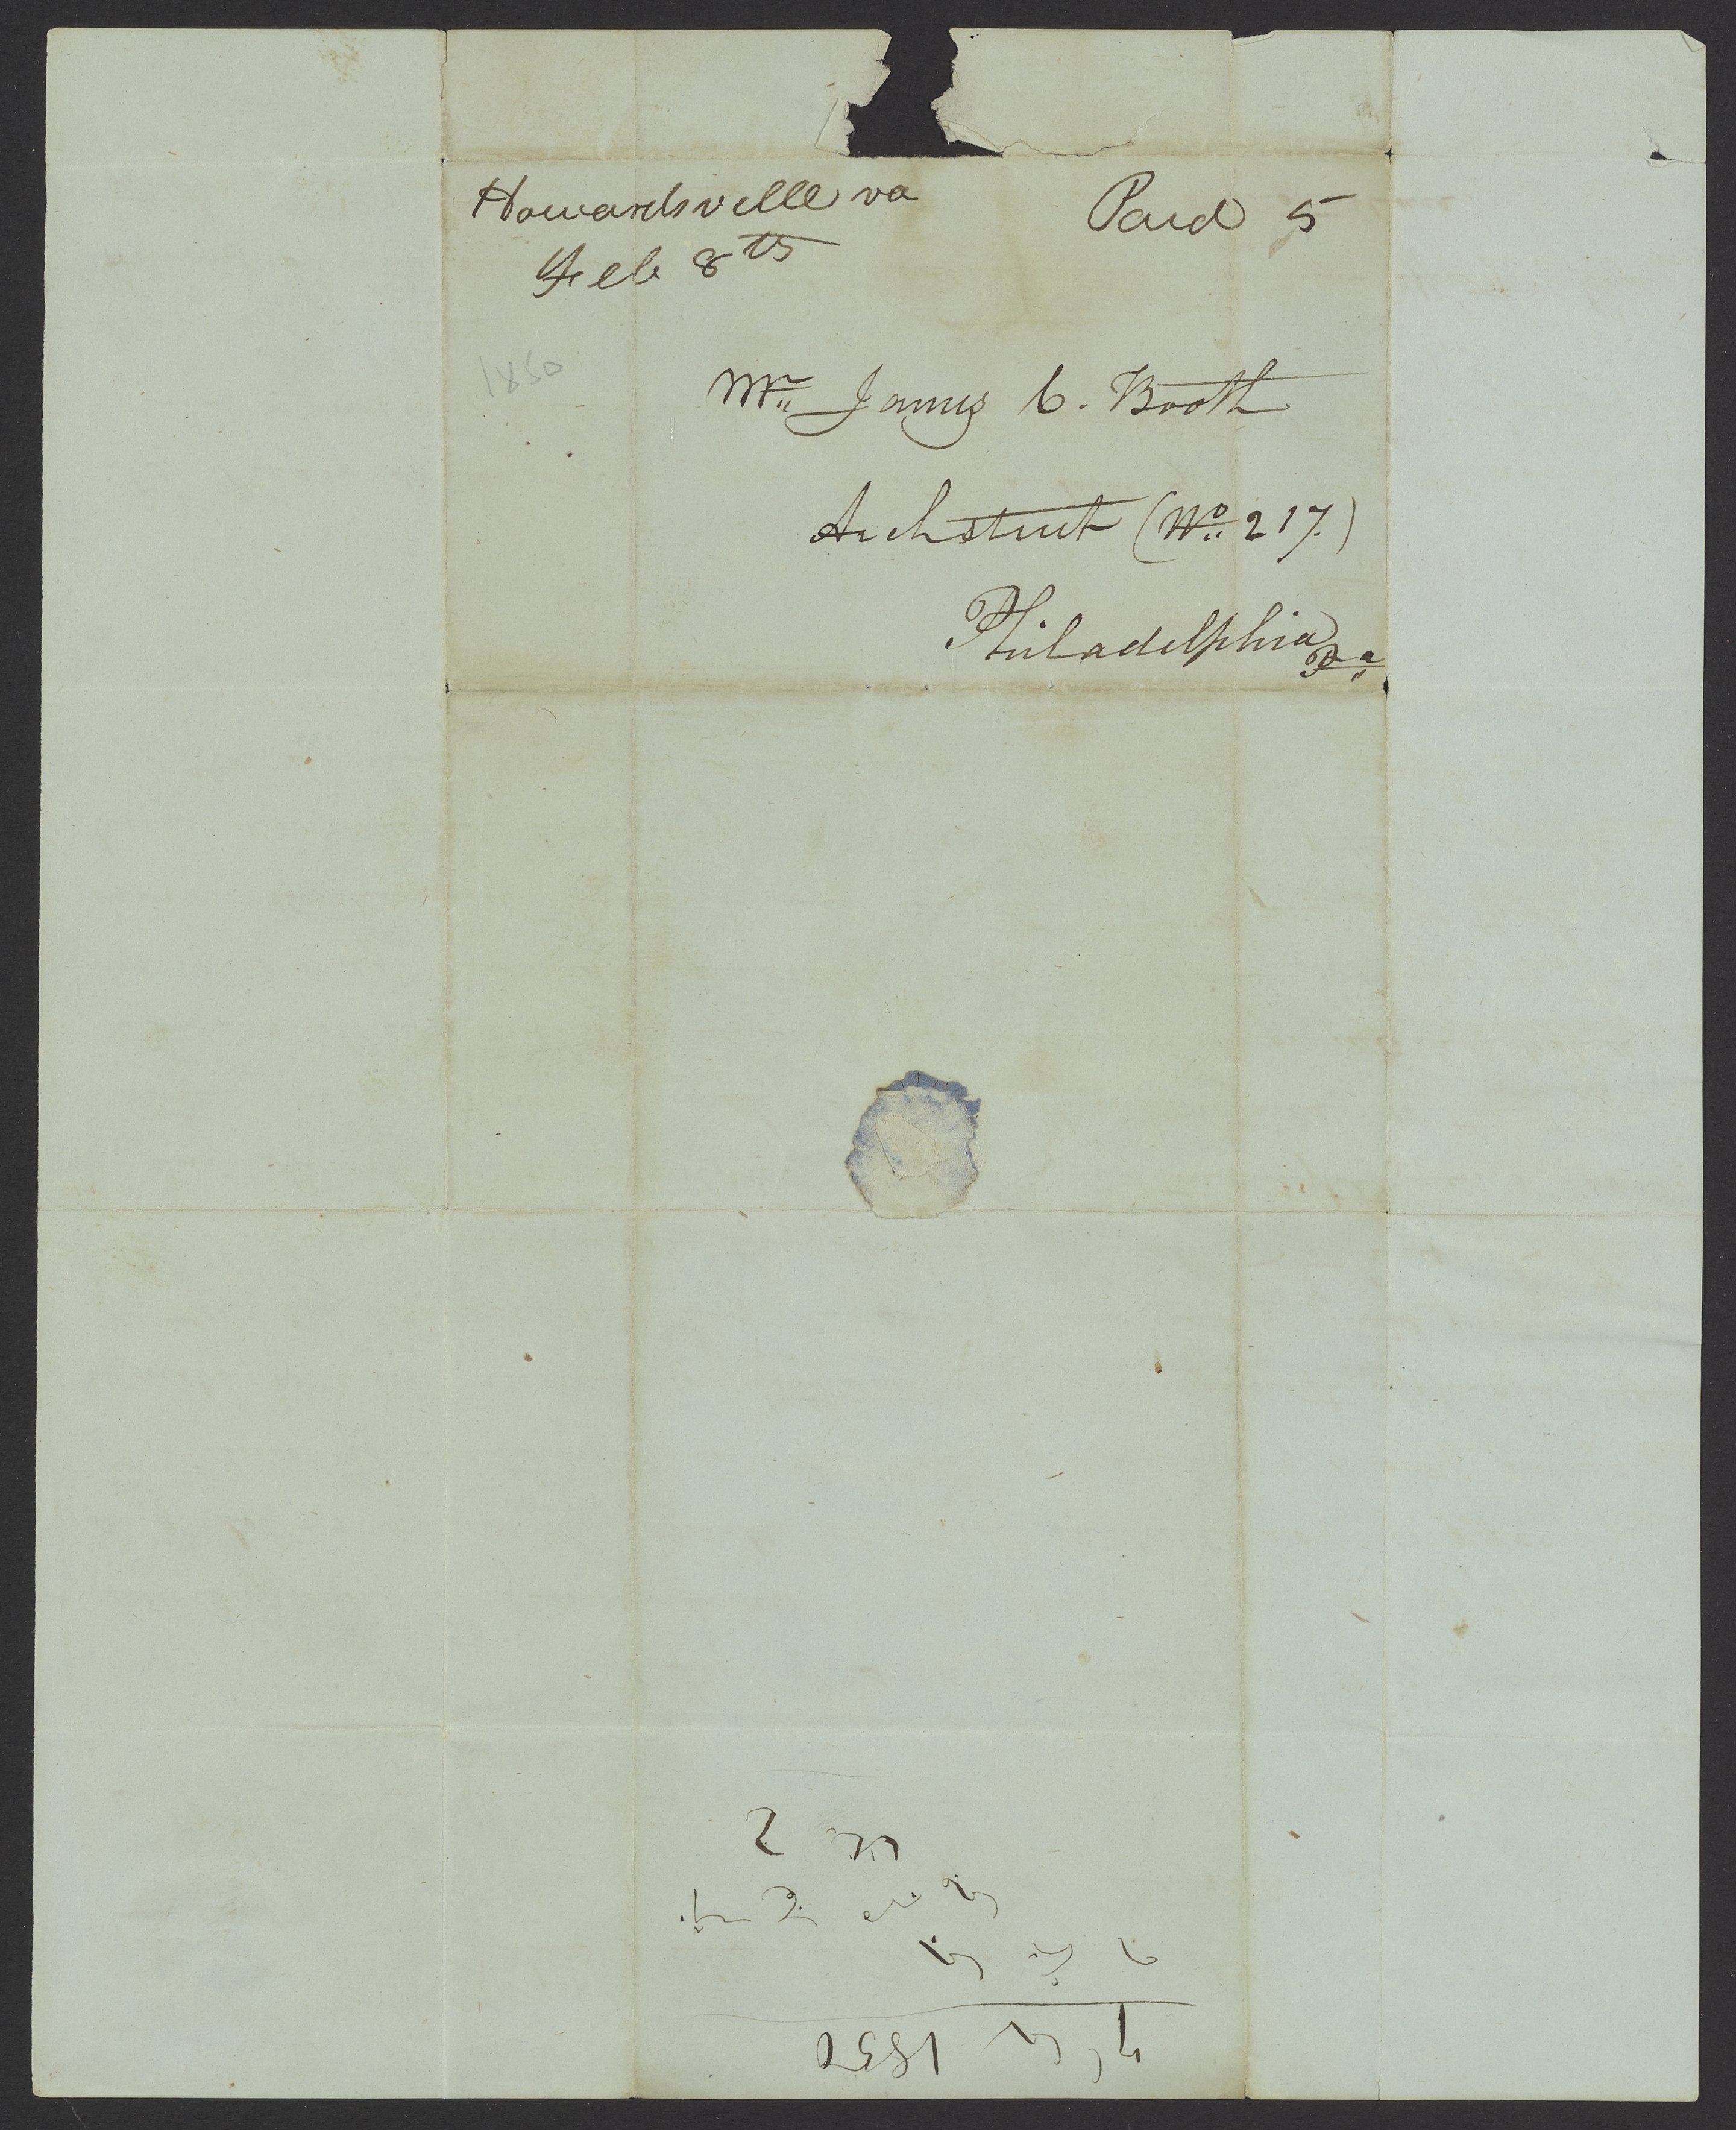 Howardsville va Paid 5
Feb 8th
1850
Mr. James C. Booth
Arch street (No. 217.)
Philadelphia Pa
1850